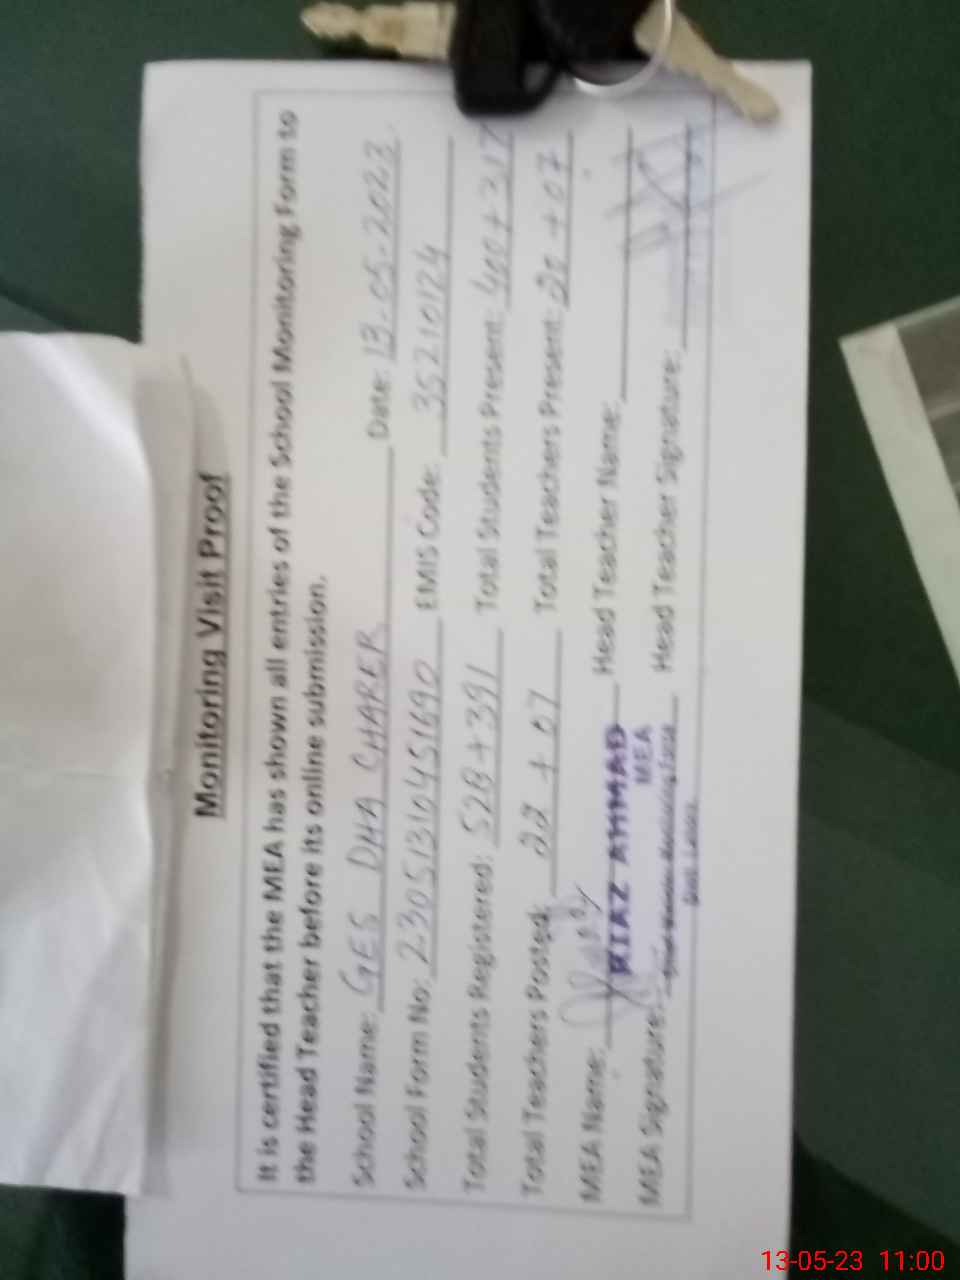 Monitoring Visit Proof
It is certified that the MEA has shown all entries of the School Monitoring Form to
the Head Teacher before its online submission.
School Name: GES DHA CHARER Date: 13-05-2023
School Form No: 23051310451690 EMIS Code: 35210124
Total Students Registered: 528+391 Total Students Present: 400+317
Total Teachers Posted: 22+07 Total Teachers Present: 20+07
MEA Name: RIAZ AHMAD Head Teacher Name:
MEA
MEA Signature: Head Teacher Signature:
13-05-23 11:00